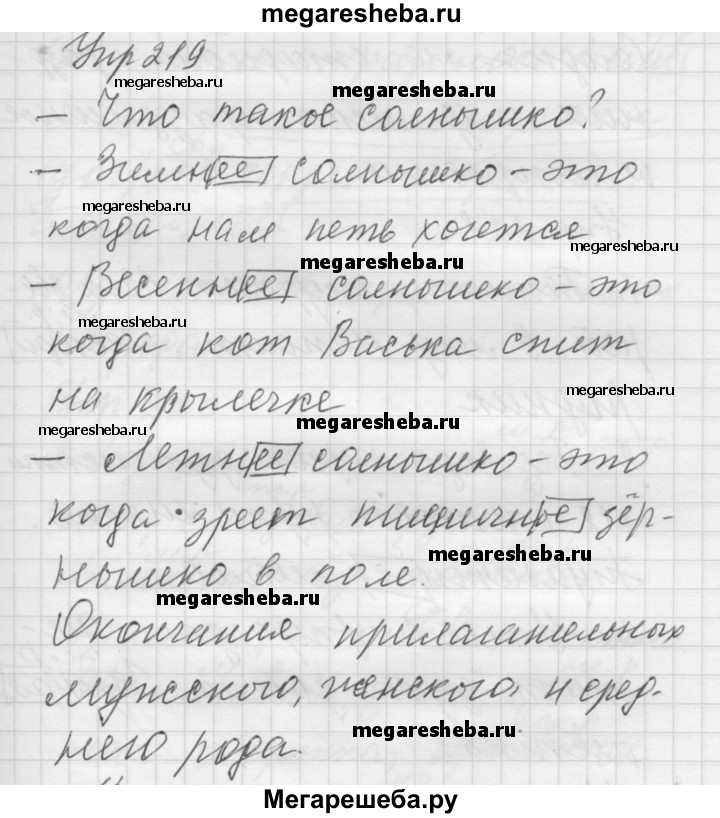 megaresheba.ru
Упр 219
megaresheba.ru
megaresheba.ru
– Что такое солнышко?
– Зимнее солнышко – это
megaresheba.ru
когда нам петь хочется
megaresheba.ru
megaresheba.ru
– Весеннее солнышко – это
megaresheba.ru
когда кот Васька спит
на крылечке
megaresheba.ru
megaresheba.ru
megaresheba.ru
– Летнее солнышко – это
когда зреет пшеничное зёр-
megaresheba.ru
нышко в поле.
megaresheba.ru
Окончания прилагательных
мужского, женского, и сред-
него рода.
megaresheba.ru
Мегарешеба.ру